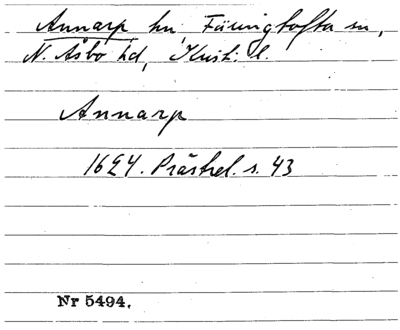 Annarp hn, Färingtofta sn,
N. Åsbo hd, Krist. l.
Annarp
1624. Prästrel. s. 43
Nr 5494.